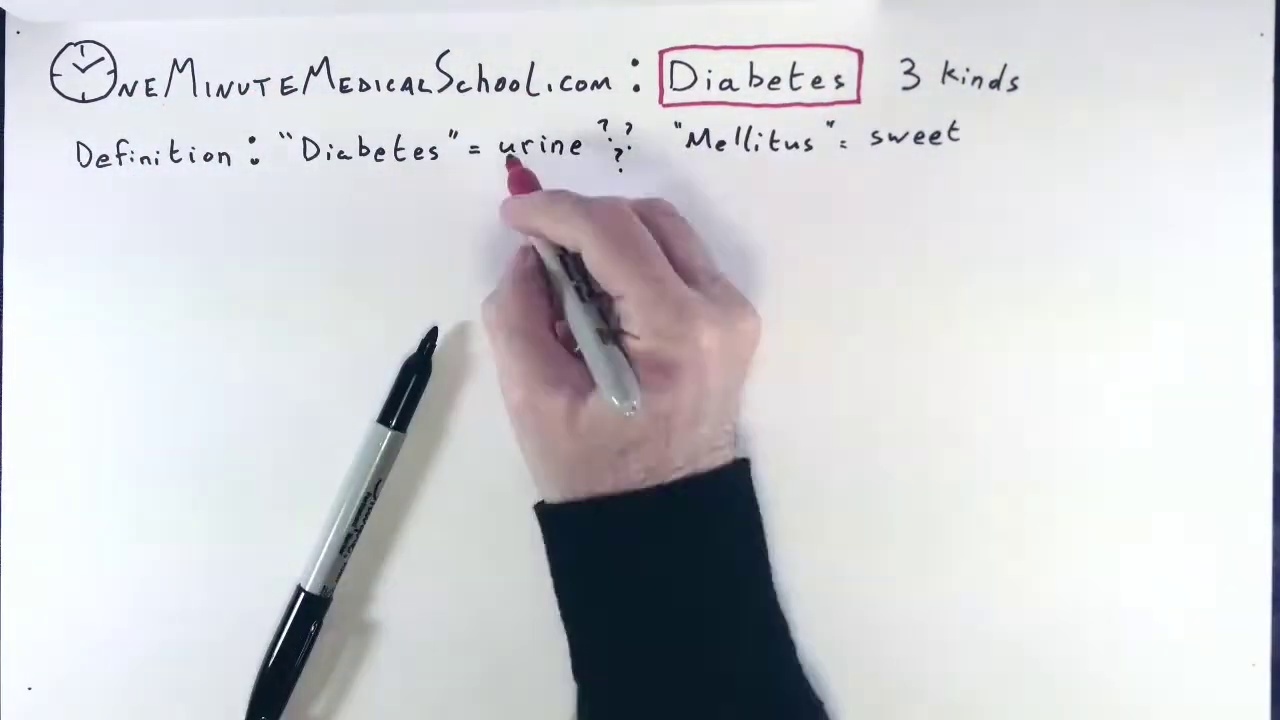 OneMinuteMedicalSchool.com : Diabetes 3 kinds
Definition : "Diabetes" = urine ??? "Mellitus" = sweet